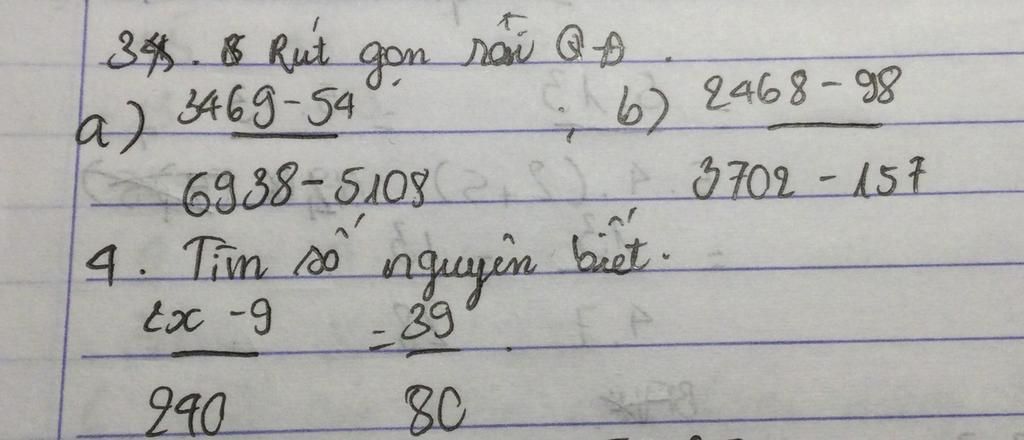 3. Rút gọn rồi QĐ.
a) 3469-54 ; b) 2468-98
6938-5108 3702-157
4. Tìm số nguyên biết.
2x-9 = 39.
240 80